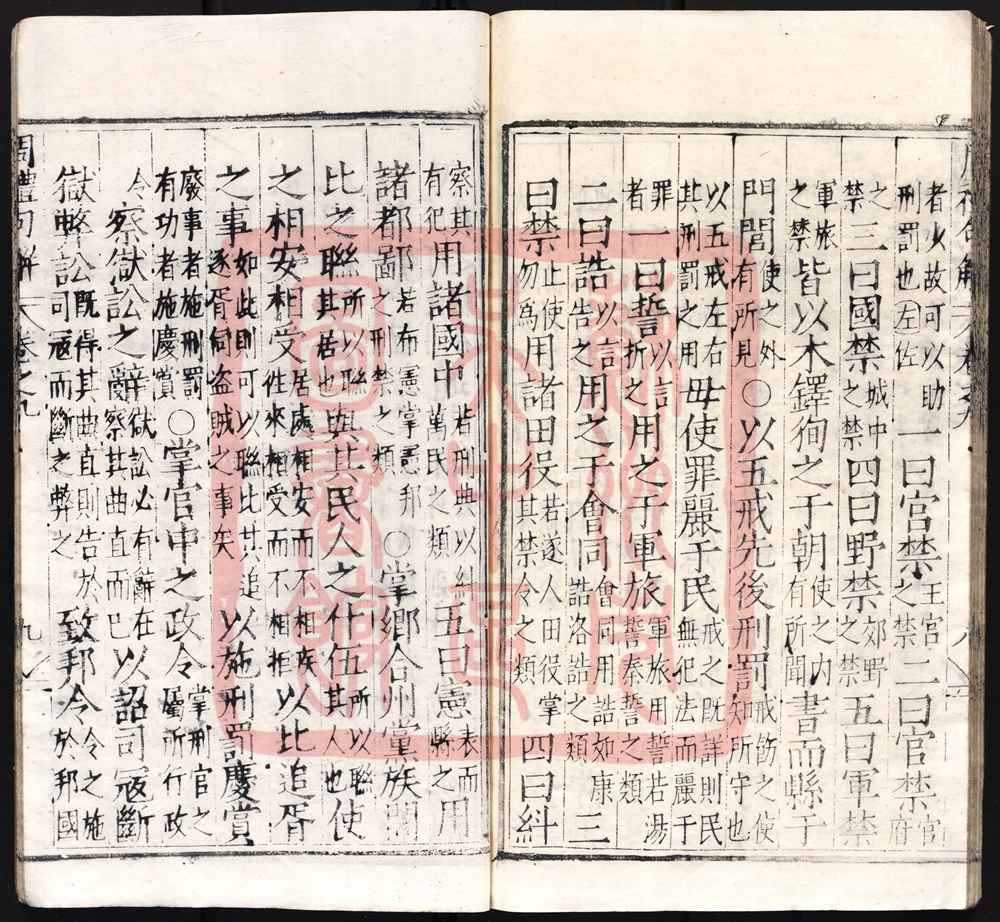 者以故可以助刑罰也左佐一曰宮禁王宮之禁二曰官禁官府
之禁三曰國禁城中之禁四曰野禁郊野之禁五曰軍禁
軍旅之禁皆以木鐸徇之于朝使之內有所聞書而縣于
門閭使之外有所見○以五戒先後刑罰戒飭之使知所守也
以五戒左右其刑罰之用毋使罪麗于民戒之既詳則民無犯法而麗于
罪者一曰誓以言折之用之于軍旅軍旅用誓若湯誓秦誓之類
二曰誥以言誥告之用之于會同會同用誥如康誥洛誥之類三
曰禁止使勿爲用諸田役若遂人田役掌其禁令之類四曰糾
察其有犯用諸國中若刑典以糾萬民之類五曰憲表而縣之用
諸都鄙若布憲掌憲邦之刑禁之類○掌鄉合州黨族閭
比之聯所以聯其居也與其民人之什伍所以聯其人也使
之相安相受居處相安而不相疾往來相受而不相拒以比追胥
之事如此則可以聯比其追逐胥伺盜賊之事矣以施刑罰慶賞
廢事者施刑罰有功者施慶賞○掌官中之政令掌刑官之屬所行政
令察獄訟之辭獄訟必有辭在察其曲直而巳以詔司寇斷
獄弊訟既得其曲直則告於司寇而斷之弊之致邦令令之施於邦國
周禮句解 卷之九 九